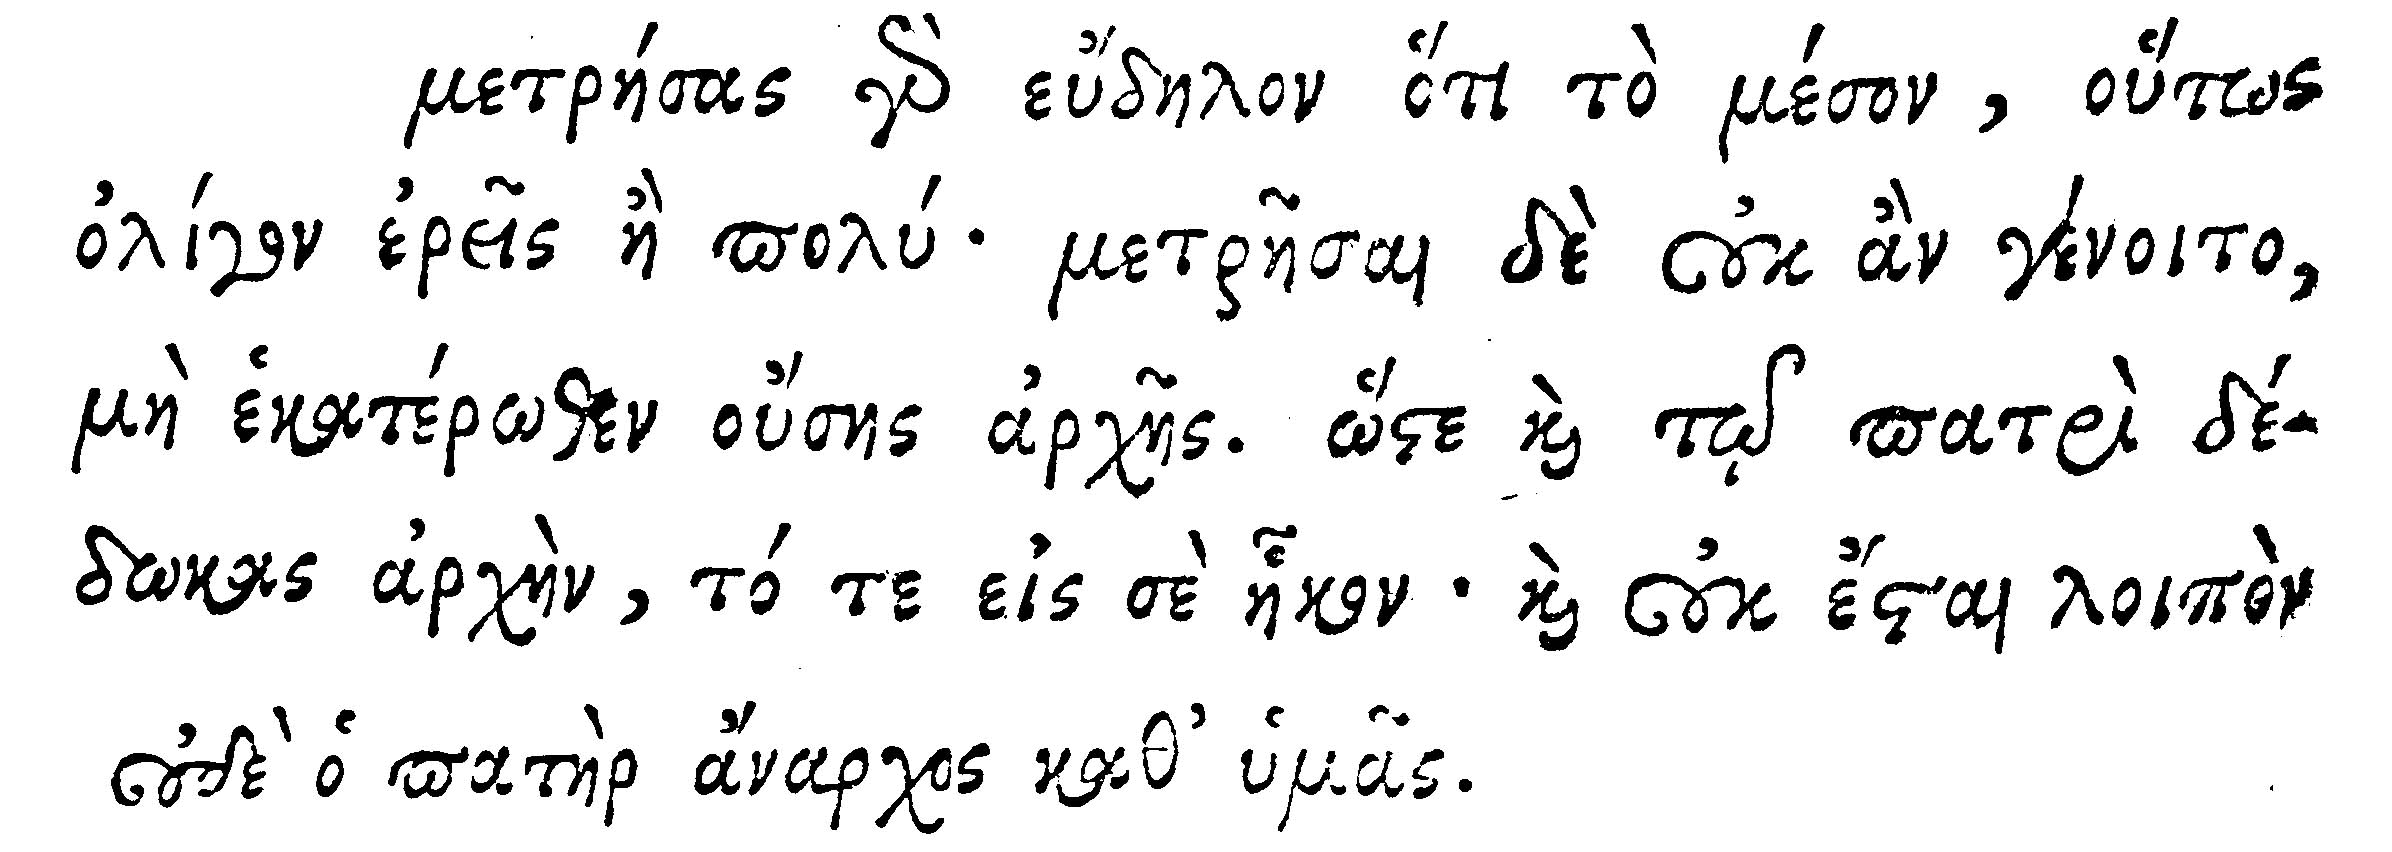 μετρήσας γὰρ εὔδηλον ὅτι τὸ μέσον, οὕτως
ὀλίγον ἐρεῖς ἢ πολύ· μετρῆσαι δὲ οὐκ ἂν γένοιτο,
μὴ ἑκατέρωθεν οὔσης ἀρχῆς. ὥστε καὶ τῷ πατρὶ δέ-
δωκας ἀρχὴν, τό τε εἰς σὲ ἧκον· καὶ οὐκ ἔσται λοιπὸν
οὐδὲ ὁ πατὴρ ἄναρχος καθ’ ὑμᾶς.